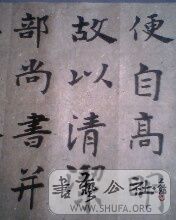 便自高
故以清潔
部尚書并
書藝公社
WWW.SHUFA.ORG